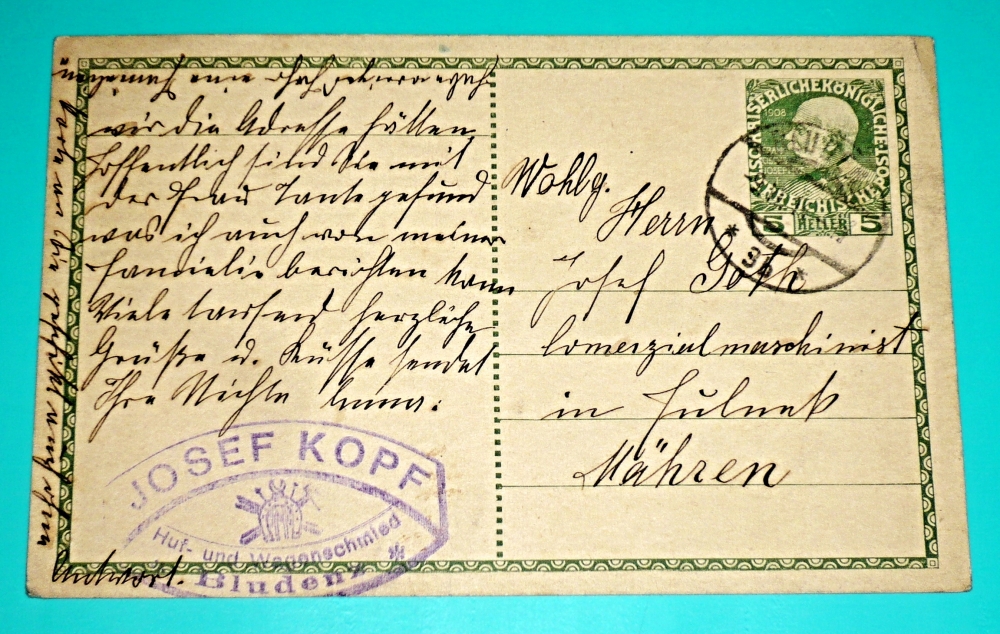 wir die Adresse hätten
Hoffentlich sind Sie mit
der Frau Tante gesund
was ich auch von meiner
Familie berichten kann
Viele tausend herzliche
Grüße u. Küsse sendet
Ihre Nichte Anna.
Antwort.
JOSEF KOPF
Huf- und Wagenschmied
* Bludenz *
Wohlg.
Herrn
Josef Goth
Comerzialmaschinist
in Fulnek
Mähren
KAISERLICHEKÖNIGLICHE
ÖSTERREICHISCHE
1908
5 HELLER 5
* 3b *